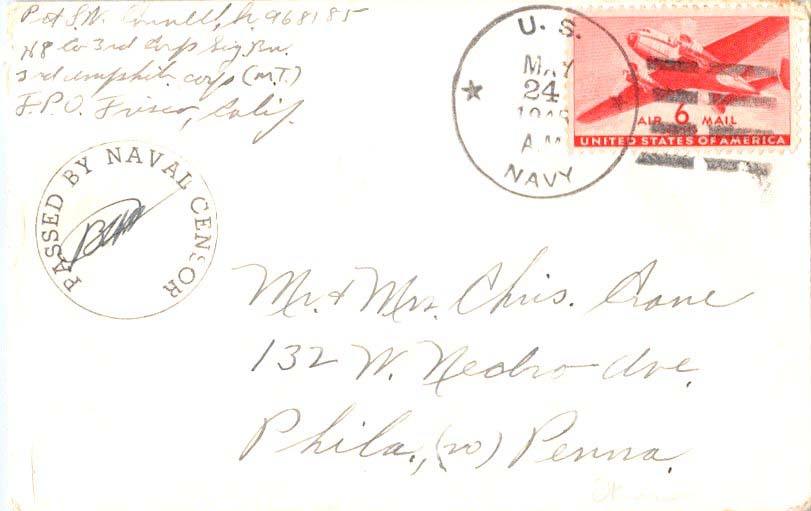 Pvt J.W. Connell, Jr 968185
H&S Co 3rd Corps Sig. Bn.
3rd amphib. corps (M.T.)
F.P.O. Frisco, Calif.
U. S.
MAY
24
A.M.
NAVY
AIR 6 MAIL
UNITED STATES OF AMERICA
PASSED BY NAVAL CENSOR
Mr. & Mrs. Chris. Crane
132 W. Nedro Ave.
Phila., (20) Penna.